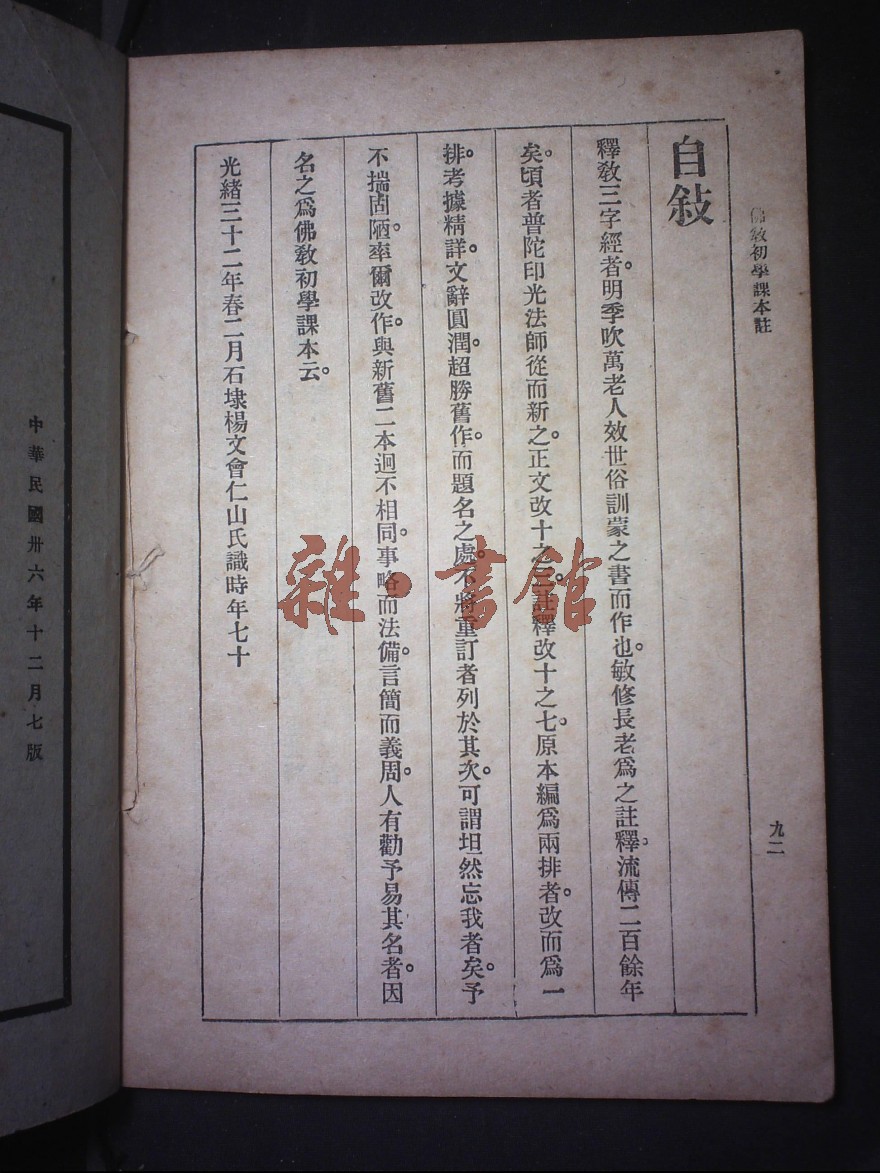 佛教初學課本註
九二
自敍
釋敎三字經者。明季吹萬老人效世俗訓蒙之書而作也。敏修長老爲之註釋。流傳二百餘年
矣。頃者普陀印光法師從而新之。正文改十之三。註釋改十之七。原本編爲兩排者。改而爲一
排。考據精詳。文辭圓潤。超勝舊作。而題名之處。不將重訂者列於其次。可謂坦然忘我者矣。予
不揣固陋。率爾改作。與新舊二本迥不相同。事略而法備。言簡而義周。人有勸予易其名者。因
名之爲佛敎初學課本云。
光緒三十二年春二月石埭楊文會仁山氏識時年七十
中華民國卅六年十二月七版
雜·書館